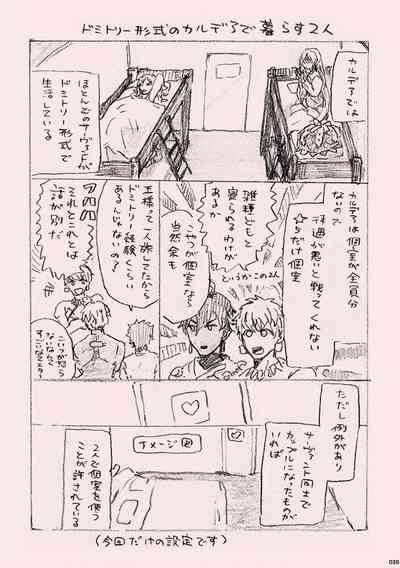 ドミトリー形式のカルデアで暮らす2人
カルデアでは
ほとんどのサーヴァントが
ドミトリー形式で
生活している
カルデアは個室が全員分
ないので
待遇が悪いと戦ってくれない
☆5だけ個室
雑種どもと
寝られるわけが
あるか
というかこの2人
こやつが個室なら
当然余も
王様って一人旅してたから
ドミトリー経験くらい
あるんじゃないの?
それとこれとは
話が別だ
ただし例外があり
サーヴァント同士で
カップルになったものが
いれば
イメージ図
2人で個室を使う
ことが許されている
(今回だけの設定です)
036